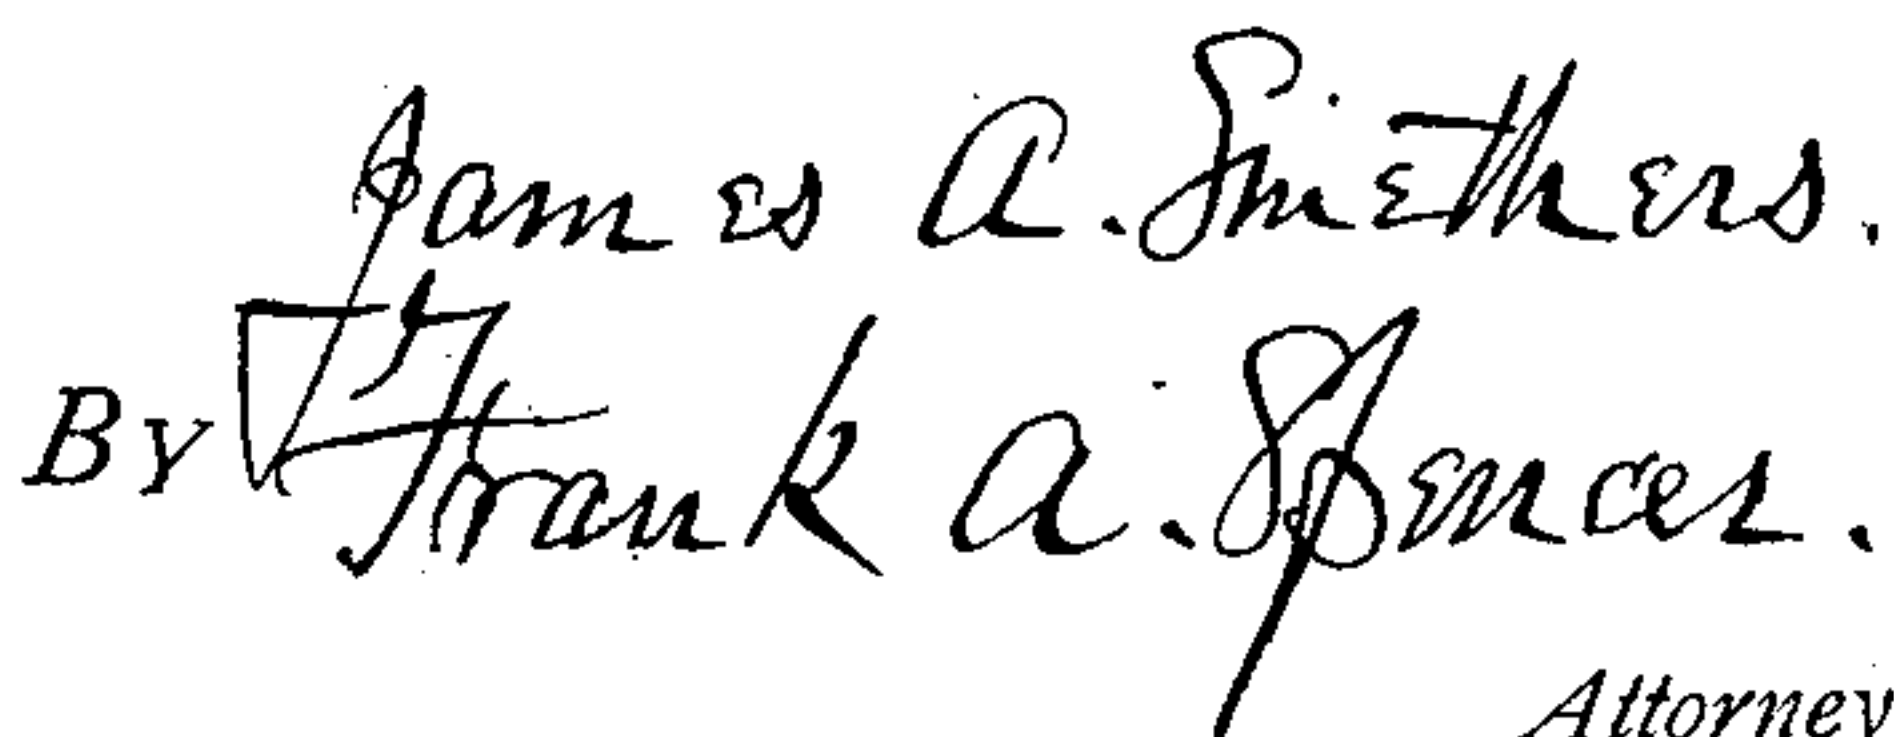 James A. Smiethers.
By Frank A. Spencer.
Attorney